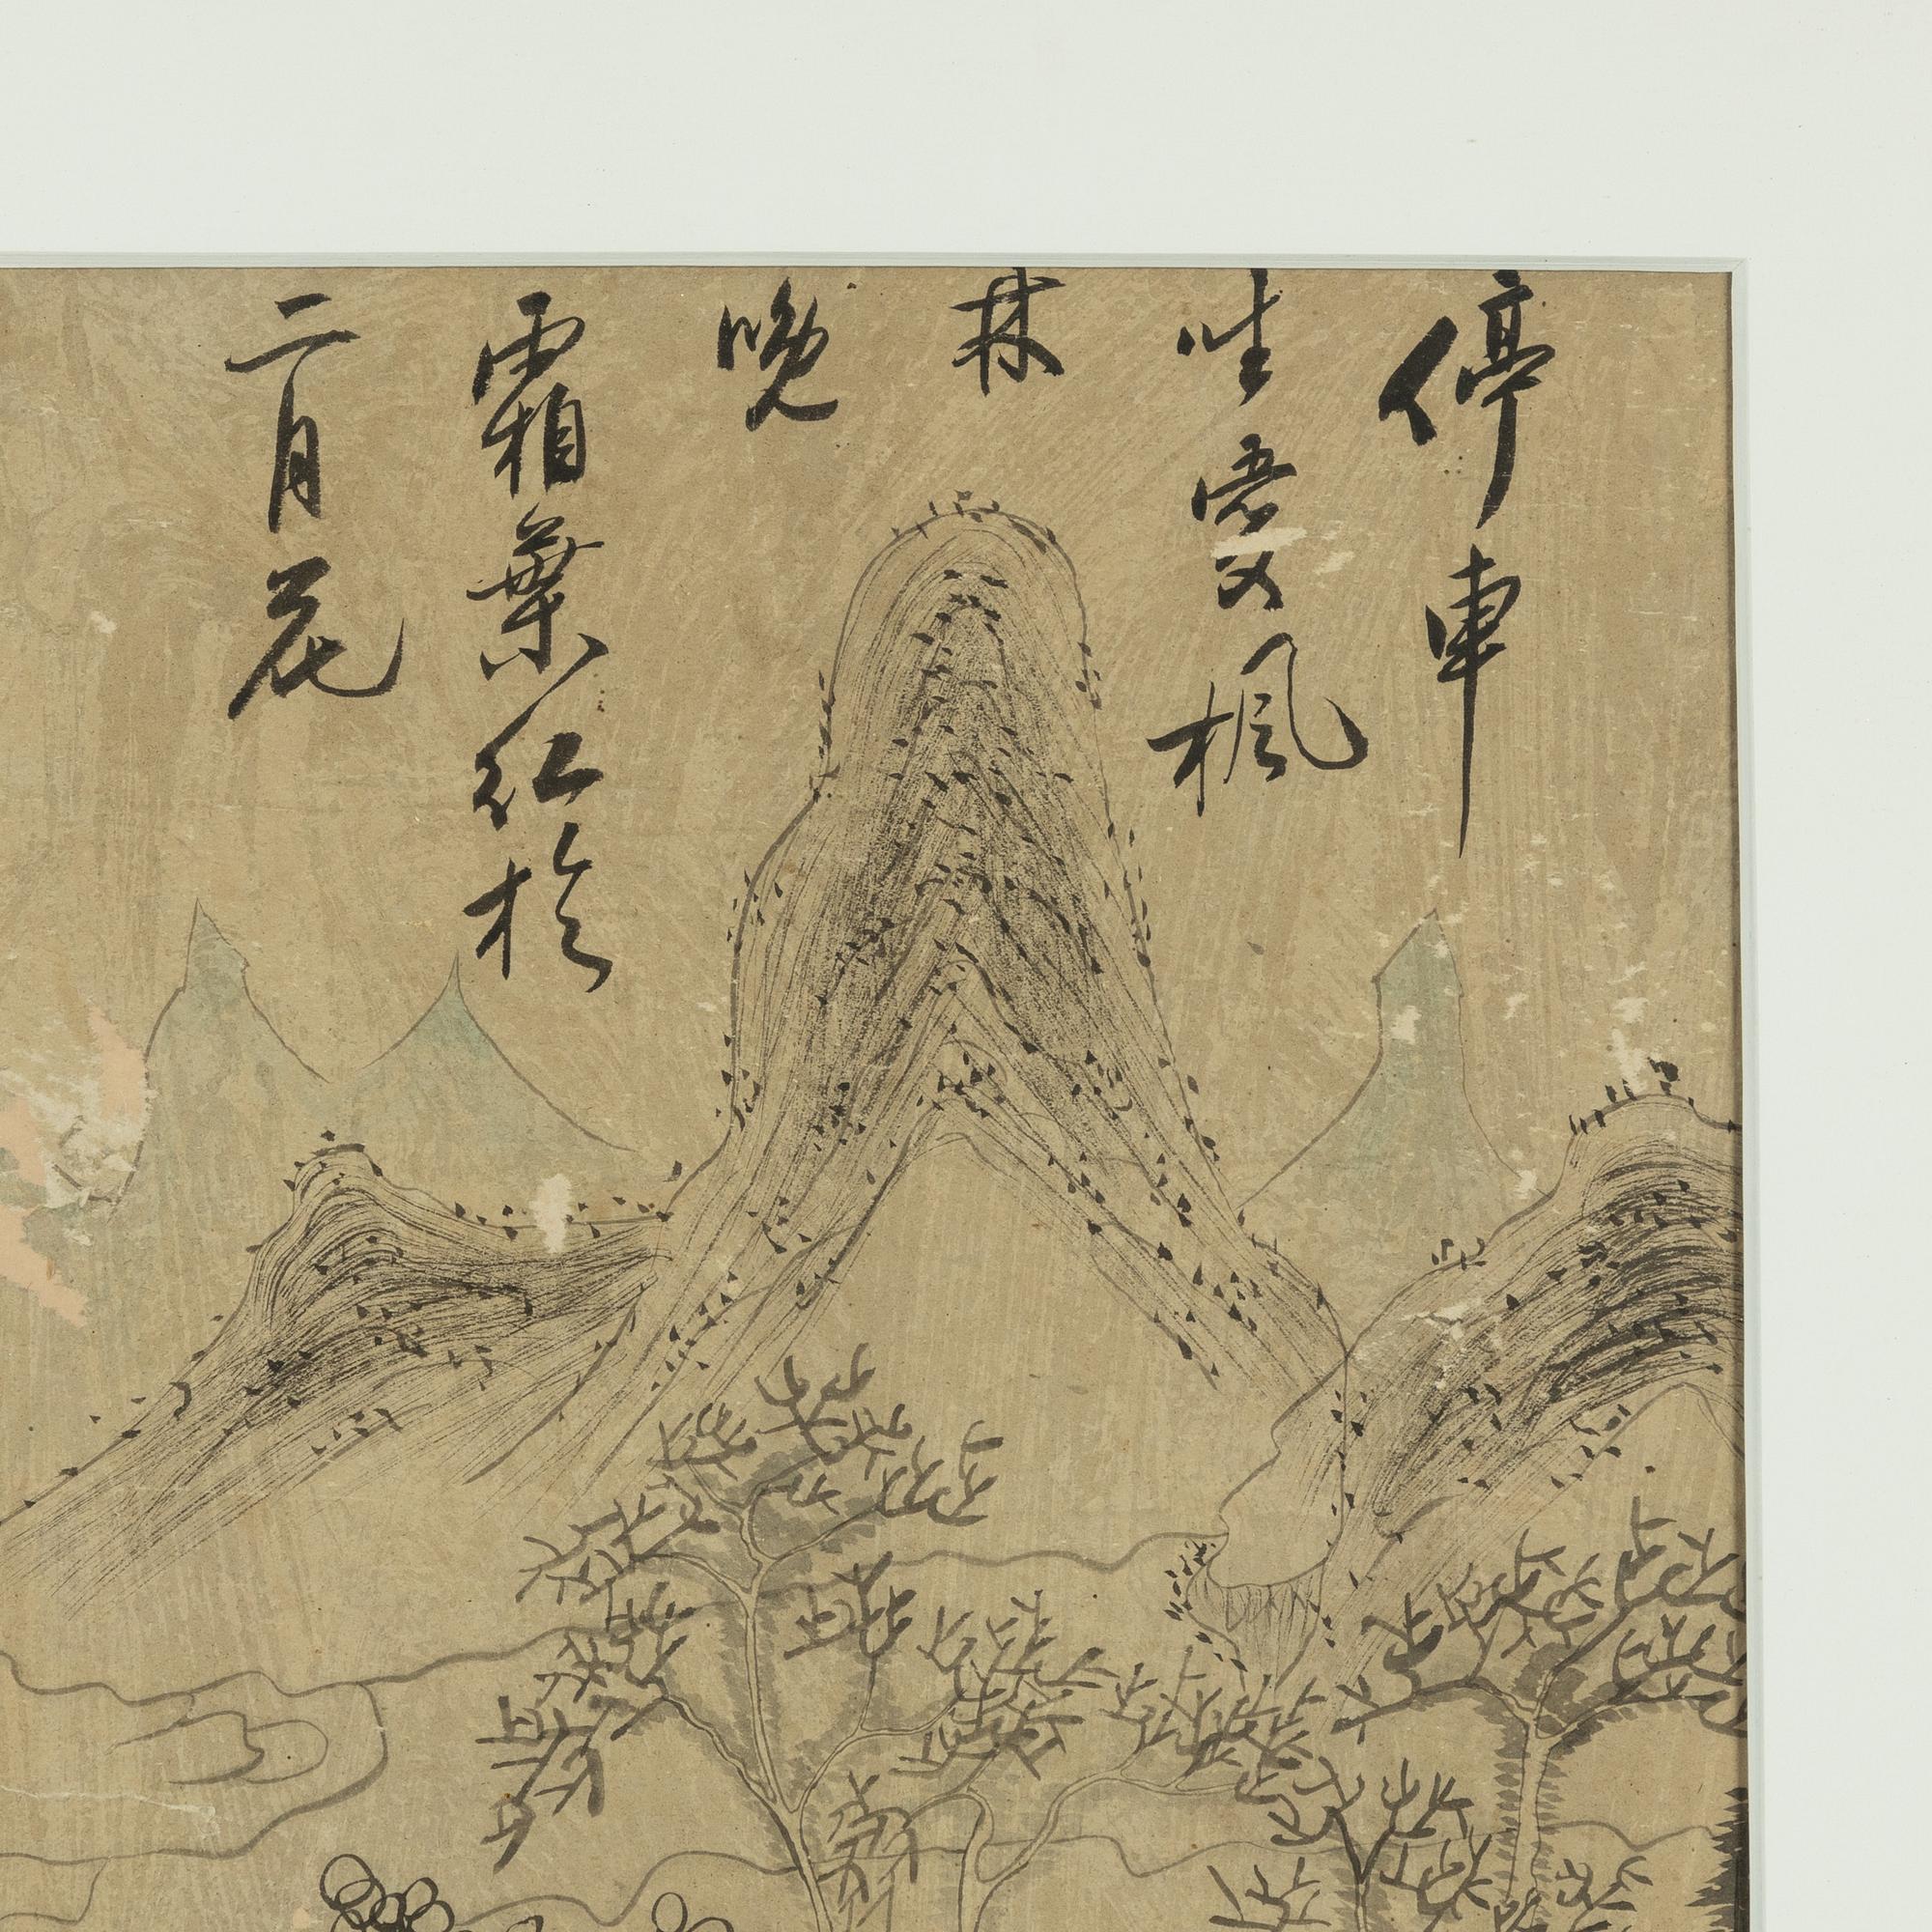 停車
坐愛楓
林
晩
霜葉紅於
二月花